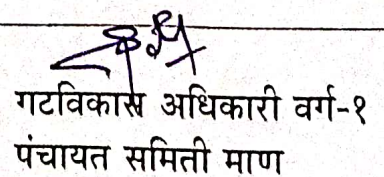 गटविकास अधिकारी वर्ग-१
पंचायत समिती माण